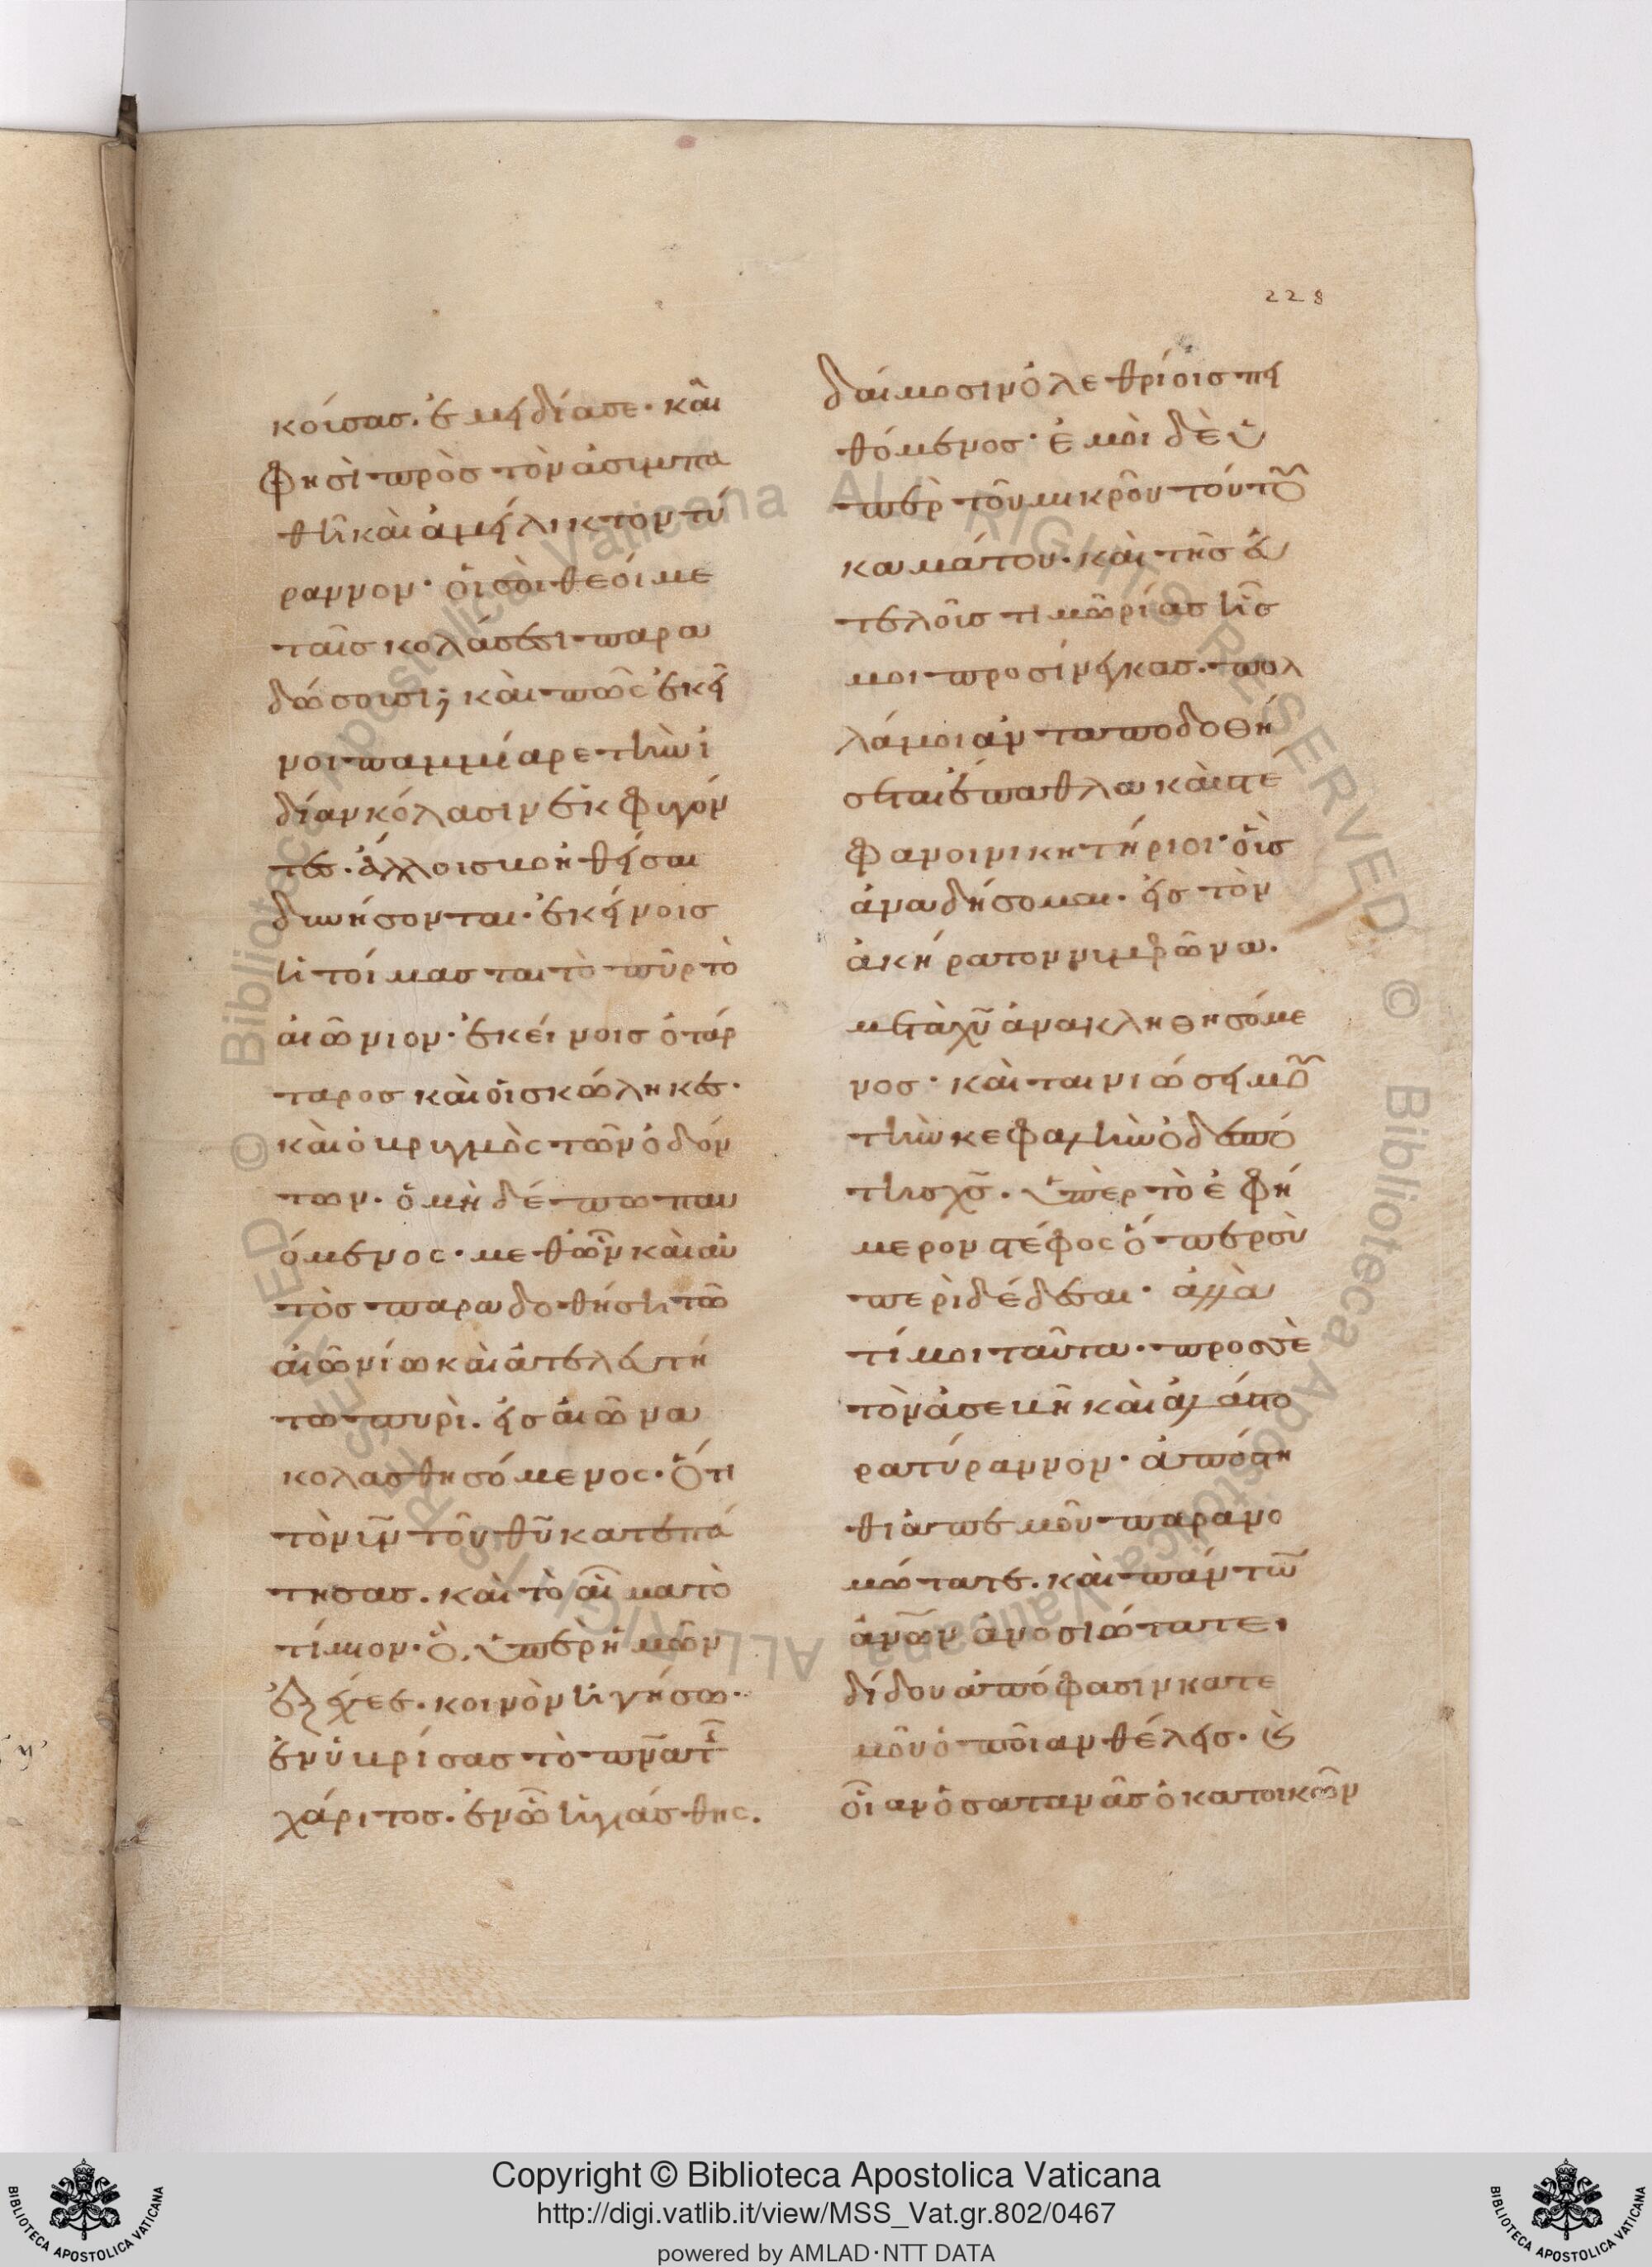 228
κόισας. ἐμειδίασε· καὶ
φησὶ πρὸς τὸν ἀσιμπα
θῆ καὶ ἀμείλικτον τύ
ραννον· οἱ σοὶ θεοί με
ταῖς κολάσεσι παρα
δώσουσι; καὶ πῶς ἐκεῖ
νοι παμμίαρε τὴν ἰ
δίαν κόλασιν ἐκφυγόν
τες. ἄλλοις βοηθῆσαι
δυνήσονται· ἐκείνοις
ἡτοίμασται τὸ πῦρ τὸ
αἰώνιον· ἐκείνοις ὁ τάρ
ταρος καὶ οἱ σκώληκες·
καὶ ὁ βρυγμὸς τῶν ὀδόν
των. ὁ μηδέπω παυ
όμενος· μεθῶν καὶ αὐ
τὸς παραδοθήση τῶ
αἰωνίω καὶ ἀτελευτή
τω πυρὶ. εἰς αἰῶνα
κολασθησόμενος· ὅτι
τὸν υἱν τοῦ θῦ κατεπά
τησας. καὶ τὸ αἷμα τὸ
τίμιον· ὃ, ὑπὲρ ἡμῶν
ἐξέχεε. κοινὸν ἡγήσω·
ἐνυβρίσας τὸ πνα τῆ
χάριτος. ἐν ὧ ἡγιάσθης.
δαίμοσιν ὀλεθρίοις πει
θόμενος· ἐμοὶ δὲ ὑ
πὲρ τοῦ μικροῦ τούτου
καμάτου. καὶ τῆς εὐ
τελοῦς τιμωρίας ἧς
μοι προσήνεγκας. πολ
λά μοι ἀνταποδοθή
σεται ἔπαθλα καὶ στέ
φανοι νικητήριοι· οἷς
ἀναδήσομαι. εἰς τὸν
ἀκήρατον νυμφῶνα.
μετὰ χῦ ἀνακληθησόμε
νος· καὶ ταινιώσει μου
τὴν κεφαλὴν ὁ δεσπό
της χς. ὑπὲρ τὸ ἐφή
μερον στέφος ὅπερ σὺ
περιδέδεσαι· ἀλλὰ
τί μοι ταῦτα. πρόσσχε
τὸν ἀσεβῆ καὶ ἀλάστο
ρα τύραννον· ἀπόστη
θι ἀπ' ἐμοῦ παρανο
μώτατε. καὶ πάντων
ἀνῶν ἀνοσιώτατε.
δίδου ἀπόφασιν κατ' ἐ
μοῦ ὁποίαν θέλεις. ἐ
οἷαν ὁ σατανᾶς ὁ κατοικῶν
Copyright © Biblioteca Apostolica Vaticana
http://digi.vatlib.it/view/MSS_Vat.gr.802/0467
powered by AMLAD·NTT DATA
BIBLIOTECA APOSTOLICA VATICANA
BIBLIOTECA APOSTOLICA VATICANA
© Biblioteca Apostolica Vaticana ALL RIGHTS RESERVED
© Biblioteca Apostolica Vaticana ALL RIGHTS RESERVED